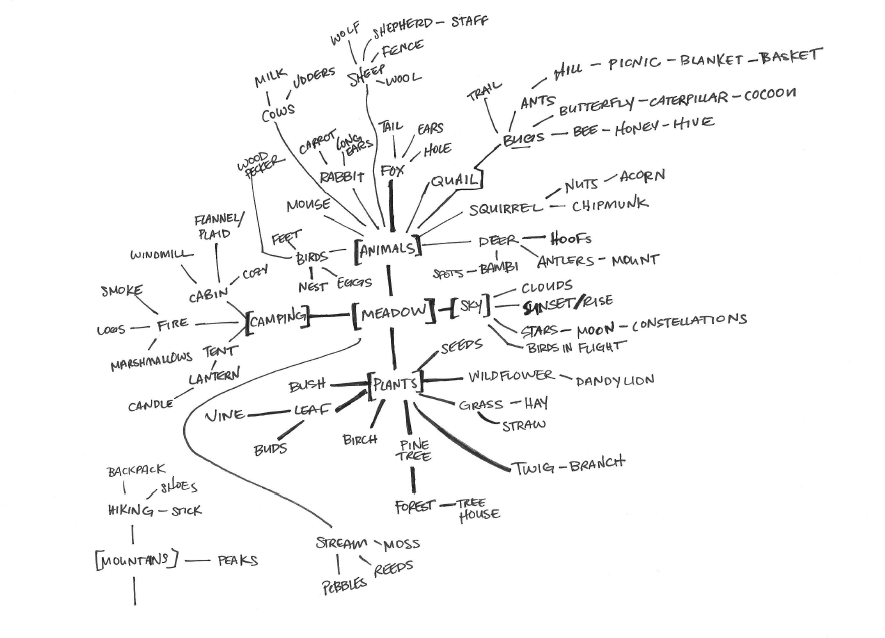 WOLF
SHEPHERD - STAFF
FENCE
SHEEP
WOOL
MILK
UDDERS
COWS
HILL - PICNIC - BLANKET - BASKET
TRAIL
ANTS
BUTTERFLY - CATERPILLAR - COCOON
BUGS - BEE - HONEY - HIVE
TAIL
EARS
HOLE
FOX
CARROT
LONG
EARS
RABBIT
WOOD
PECKER
QUAIL
NUTS - ACORN
SQUIRREL - CHIPMUNK
MOUSE
FLANNEL/
PLAID
FEET
BIRDS
NEST
EGGS
[ANIMALS]
DEER - HOOFS
SPOTS - BAMBI
ANTLERS - MOUNT
WINDMILL
COZY
CABIN
SMOKE
LOGS - FIRE
MARSHMALLOWS
TENT
LANTERN
CANDLE
[CAMPING]
[MEADOW]
[SKY]
CLOUDS
SUNSET/RISE
STARS - MOON - CONSTELLATIONS
BIRDS IN FLIGHT
SEEDS
BUSH
[PLANTS]
WILDFLOWER - DANDYLION
VINE - LEAF
BUDS
BIRCH
PINE
TREE
GRASS - HAY
STRAW
TWIG - BRANCH
FOREST - TREE
HOUSE
BACKPACK
SHOES
HIKING - STICK
[MOUNTAINS] - PEAKS
STREAM - MOSS
REEDS
PEBBLES